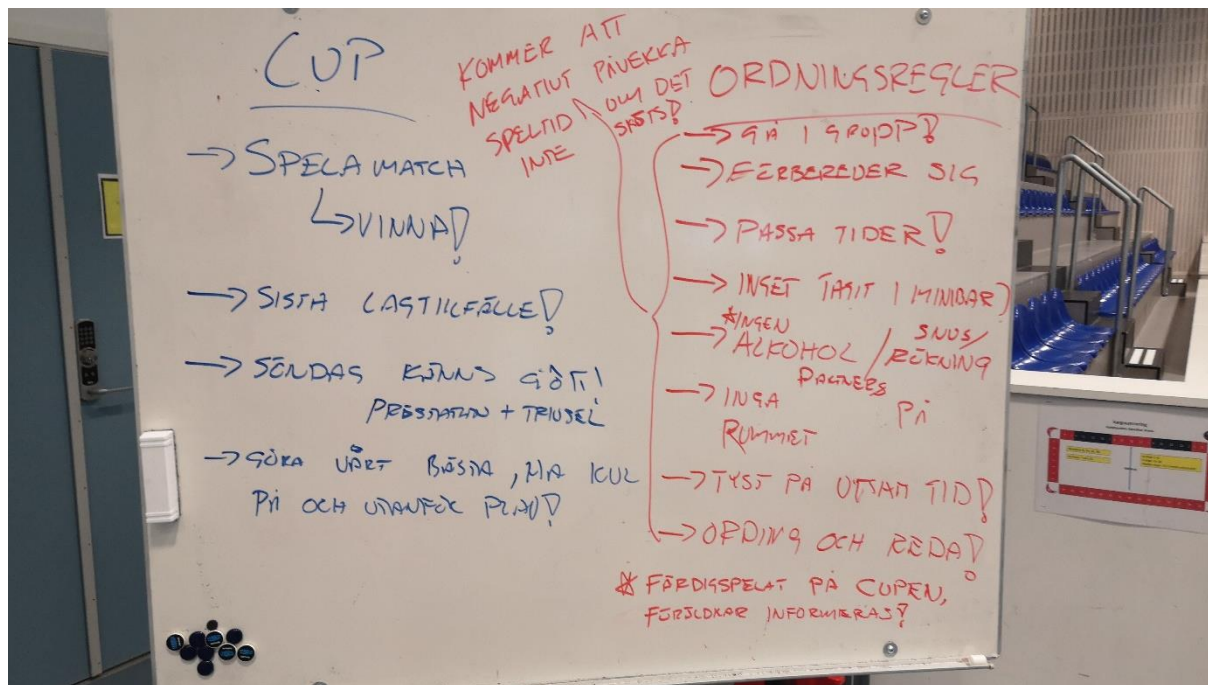 CUP
→ SPELA MATCH
↳ VINNA!
→ SISTA LAGTILLFÄLLE!
→ SÖNDAG KÄNNS GÖTT!
PRESTATION + TRIVSEL
→ GÖRA VÅRT BÄSTA, HA KUL
PÅ OCH UTANFÖR PLAN!
KOMMER ATT
NEGATIVT PÅVERKA
SPELTID OM DET
INTE SKÖTS!
ORDNINGSREGLER
→ GÅ I GRUPP!
→ FÖRBEREDER SIG
→ PASSA TIDER!
→ INGET TAGIT I MINIBAR
*INGEN
→ ALKOHOL / SNUS/
RÖKNING
→ INGA PARTNERS PÅ
RUMMET
→ TYST PÅ UTSATT TID!
→ ORDING OCH REDA!
* FÄRDIGSPELAT PÅ CUPEN,
FÖRÄLDRAR INFORMERAS!